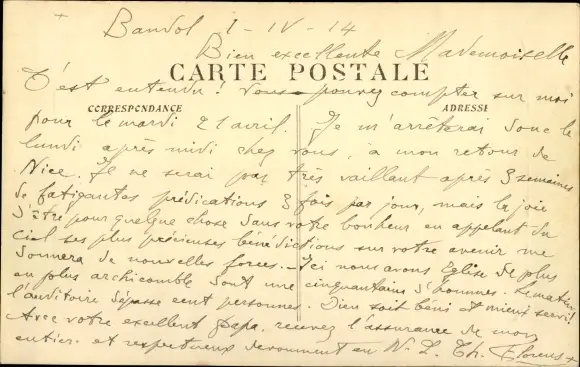 Bandol 1-IV-14
Bien excellente Mademoiselle
CARTE POSTALE
C'est entendu! Vous pouvez compter sur moi
CORRESPONDANCE
ADRESSE
pour le mardi 21 avril. Je m'arrêterai donc le
lundi après midi chez vous, à mon retour de
Nice. Je ne serai pas très vaillant après 3 semaines
de fatigantes prédications 3 fois par jour, mais la joie
d'être pour quelque chose dans votre bonheur en appelant du
Ciel ses plus précieuses bénédictions sur votre avenir me
donnera de nouvelles forces. - Ici nous avons Eglise de plus
en plus archicomble dont une cinquantaine d'hommes. Le matin
l'auditoire dépasse cent personnes. Dieu soit béni et mieux servi!
Avec votre excellent papa, recevez l'assurance de mon
entier et respectueux dévouement en N. S. Th. Florens